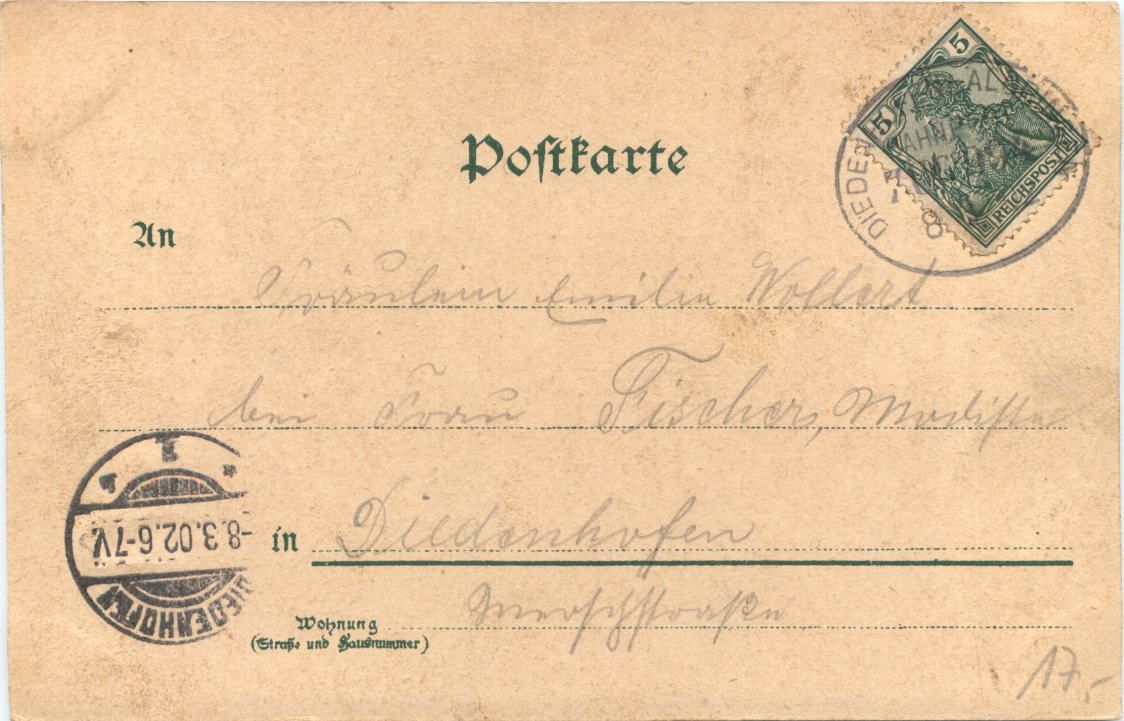 5
5
REICHSPOST
DIEDEN
BAHNP
8
Postkarte
An
Fräulein Emilie Wollert
bei Frau Fischer, Modiste
in Diedenhofen
-8.3.02.6-7V.
DIEDENHOFEN
Wohnung
(Straße und Hausnummer)
17.-